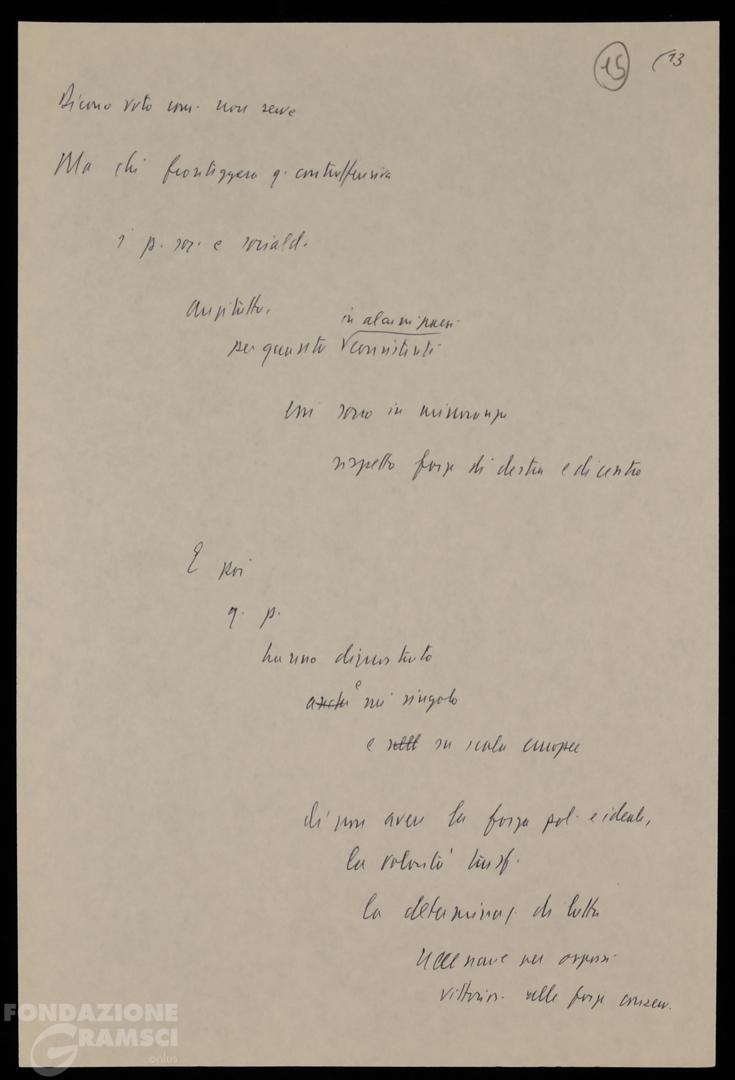 15 (13
Dicono voto com. non serve
Ma chi fronteggerà q. controffensiva
i p. soc. e sociald.
anzitutto,
in alcuni paesi
per quanto consistenti
essi sono in minoranza
rispetto forze di destra e di centro
E poi
q. p.
hanno dimostrato
anche e nei singolo
e nell su scala europea
di non avere la forza pol. e ideale,
la volontà trasf.
la determinaz. di lotta
necessarie per opporsi
vittorios. alle forze conserv.
FONDAZIONE
GRAMSCI
onlus